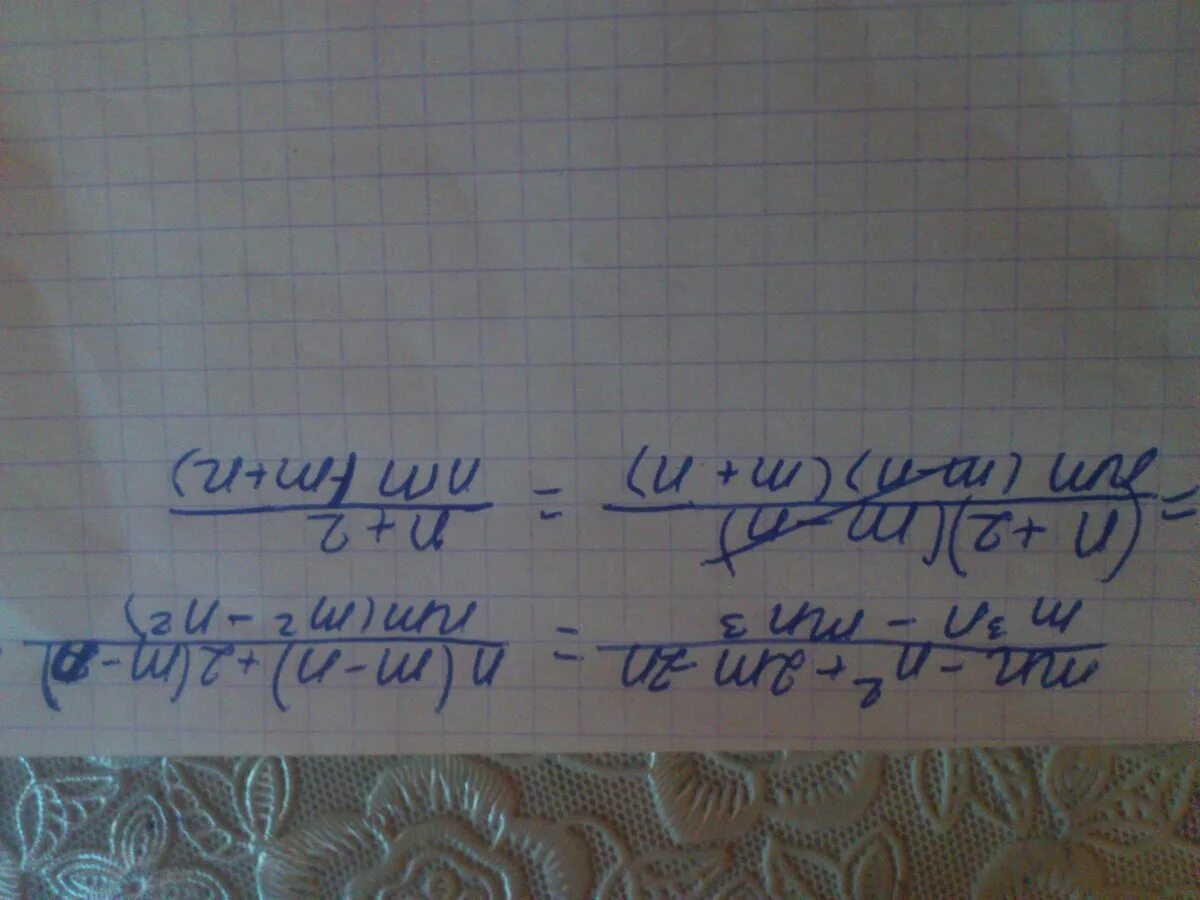 (mn - n² + 2m - 2n) / (m³n - mn³) = (n(m-n) + 2(m-n)) / (nm(m² - n²)) =
= ((n+2)(m-n)) / (nm(m-n)(m+n)) = (n+2) / (nm(m+n))